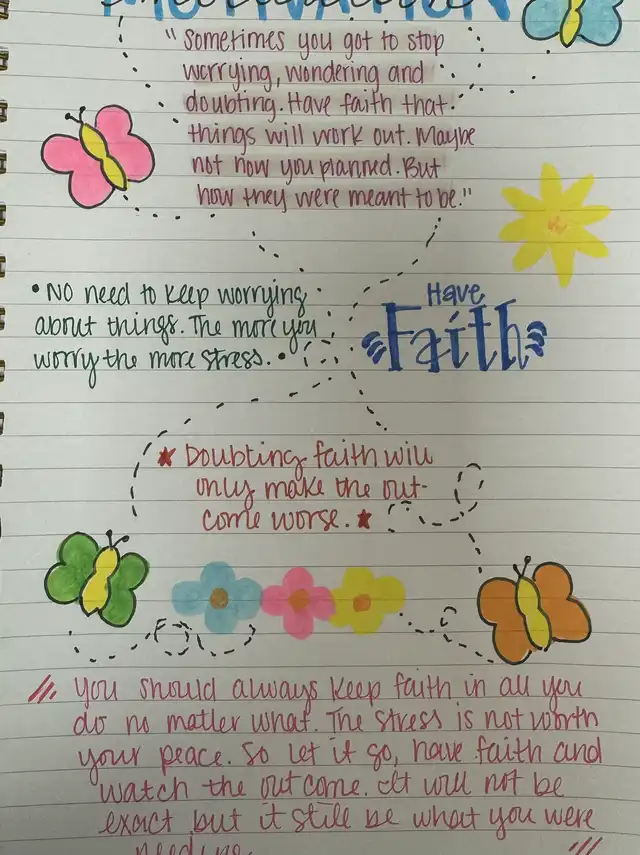 MOTIVATION
"Sometimes you got to stop
worrying, wondering and
doubting. Have faith that
things will work out. Maybe
not how you planned. But
how they were meant to be."
• NO need to keep worrying
about things. The more you
worry the more stress. •
Have
Faith
★ Doubting faith will
only make the out-
come worse. ★
You should always keep faith in all you
do no matter what. The stress is not worth
your peace. So let it go, have faith and
watch the outcome. It will not be
exact but it still be what you were
needing